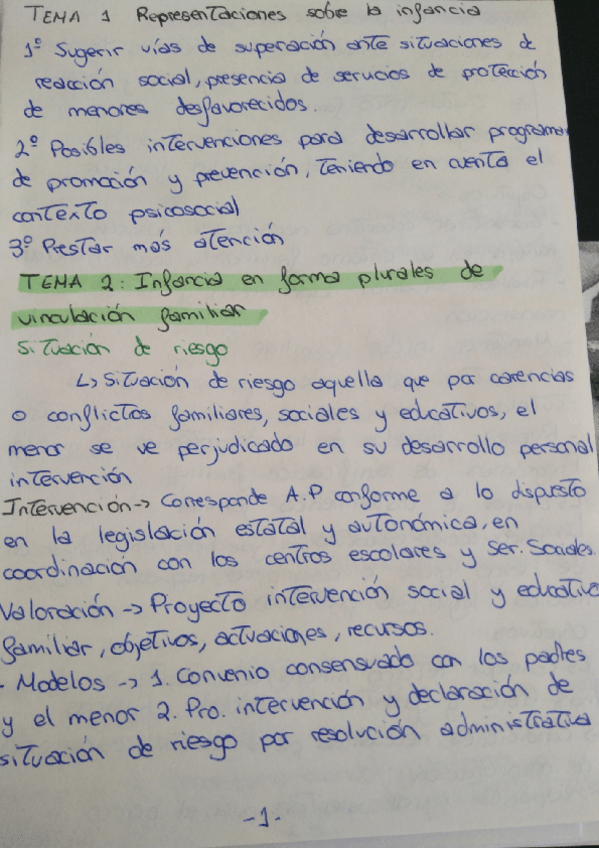 TEMA 1 Representaciones sobre la infancia
1º Sugerir vías de superación ante situaciones de
reacción social, presencia de servicios de protección
de menores desfavorecidos.
2º Posibles intervenciones para desarrollar programas
de promoción y prevención, teniendo en cuenta el
contexto psicosocial
3º Prestar más atención
TEMA 2: Infancia en forma plurales de
vinculación familiar
Situación de riesgo
↳ Situación de riesgo aquella que por carencias
o conflictos familiares, sociales y educativos, el
menor se ve perjudicado en su desarrollo personal
intervención
Intervención -> Corresponde A.P conforme a lo dispuesto
en la legislación estatal y autonómica, en
coordinación con los centros escolares y Ser. Sociales.
Valoración -> Proyecto intervención social y educativo
familiar, objetivos, actuaciones, recursos.
- Modelos -> 1. Convenio consensuado con los padres
y el menor 2. Pro. intervención y declaración de
situación de riesgo por resolución administrativa
-1-